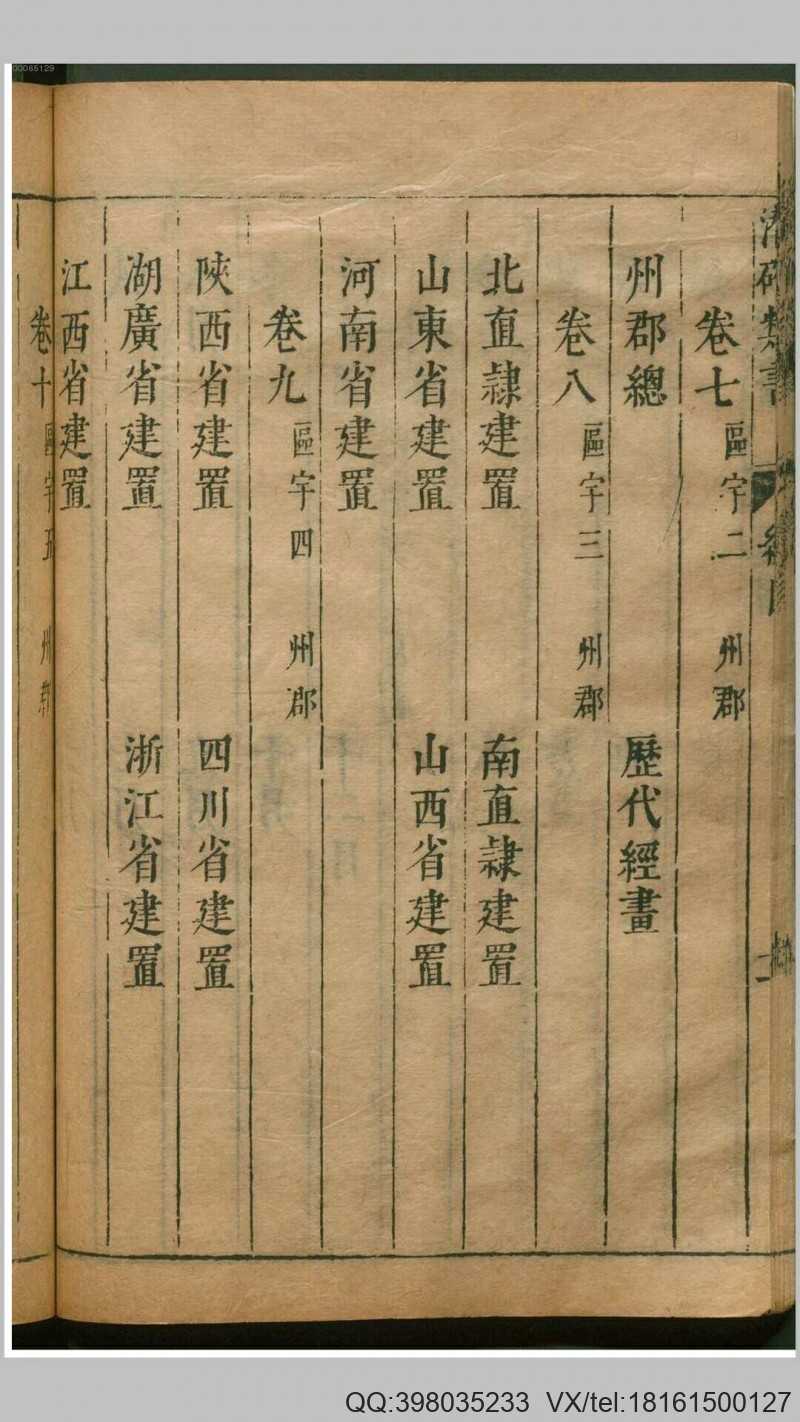 00065129
卷七 區宇二 州郡
州郡總 歷代經畫
卷八 區宇三 州郡
北直隸建置 南直隸建置
山東省建置 山西省建置
河南省建置
卷九 區宇四 州郡
陝西省建置 四川省建置
湖廣省建置 浙江省建置
江西省建置
卷十 區宇五 州郡
QQ:398035233 VX/tel:18161500127